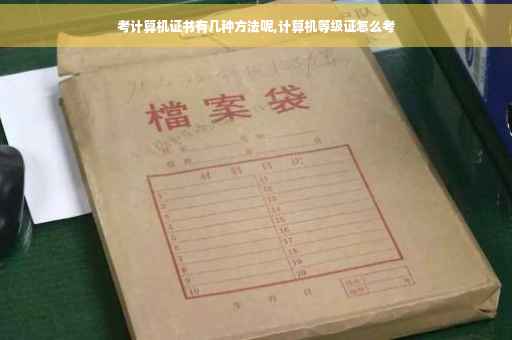 考计算机证书有几种方法呢,计算机等级证怎么考
檔案袋
材料目次
1 11
2 12
3 13
4 14
5 15
6 16
7 17
8 18
9 19
10 20
年 月 日